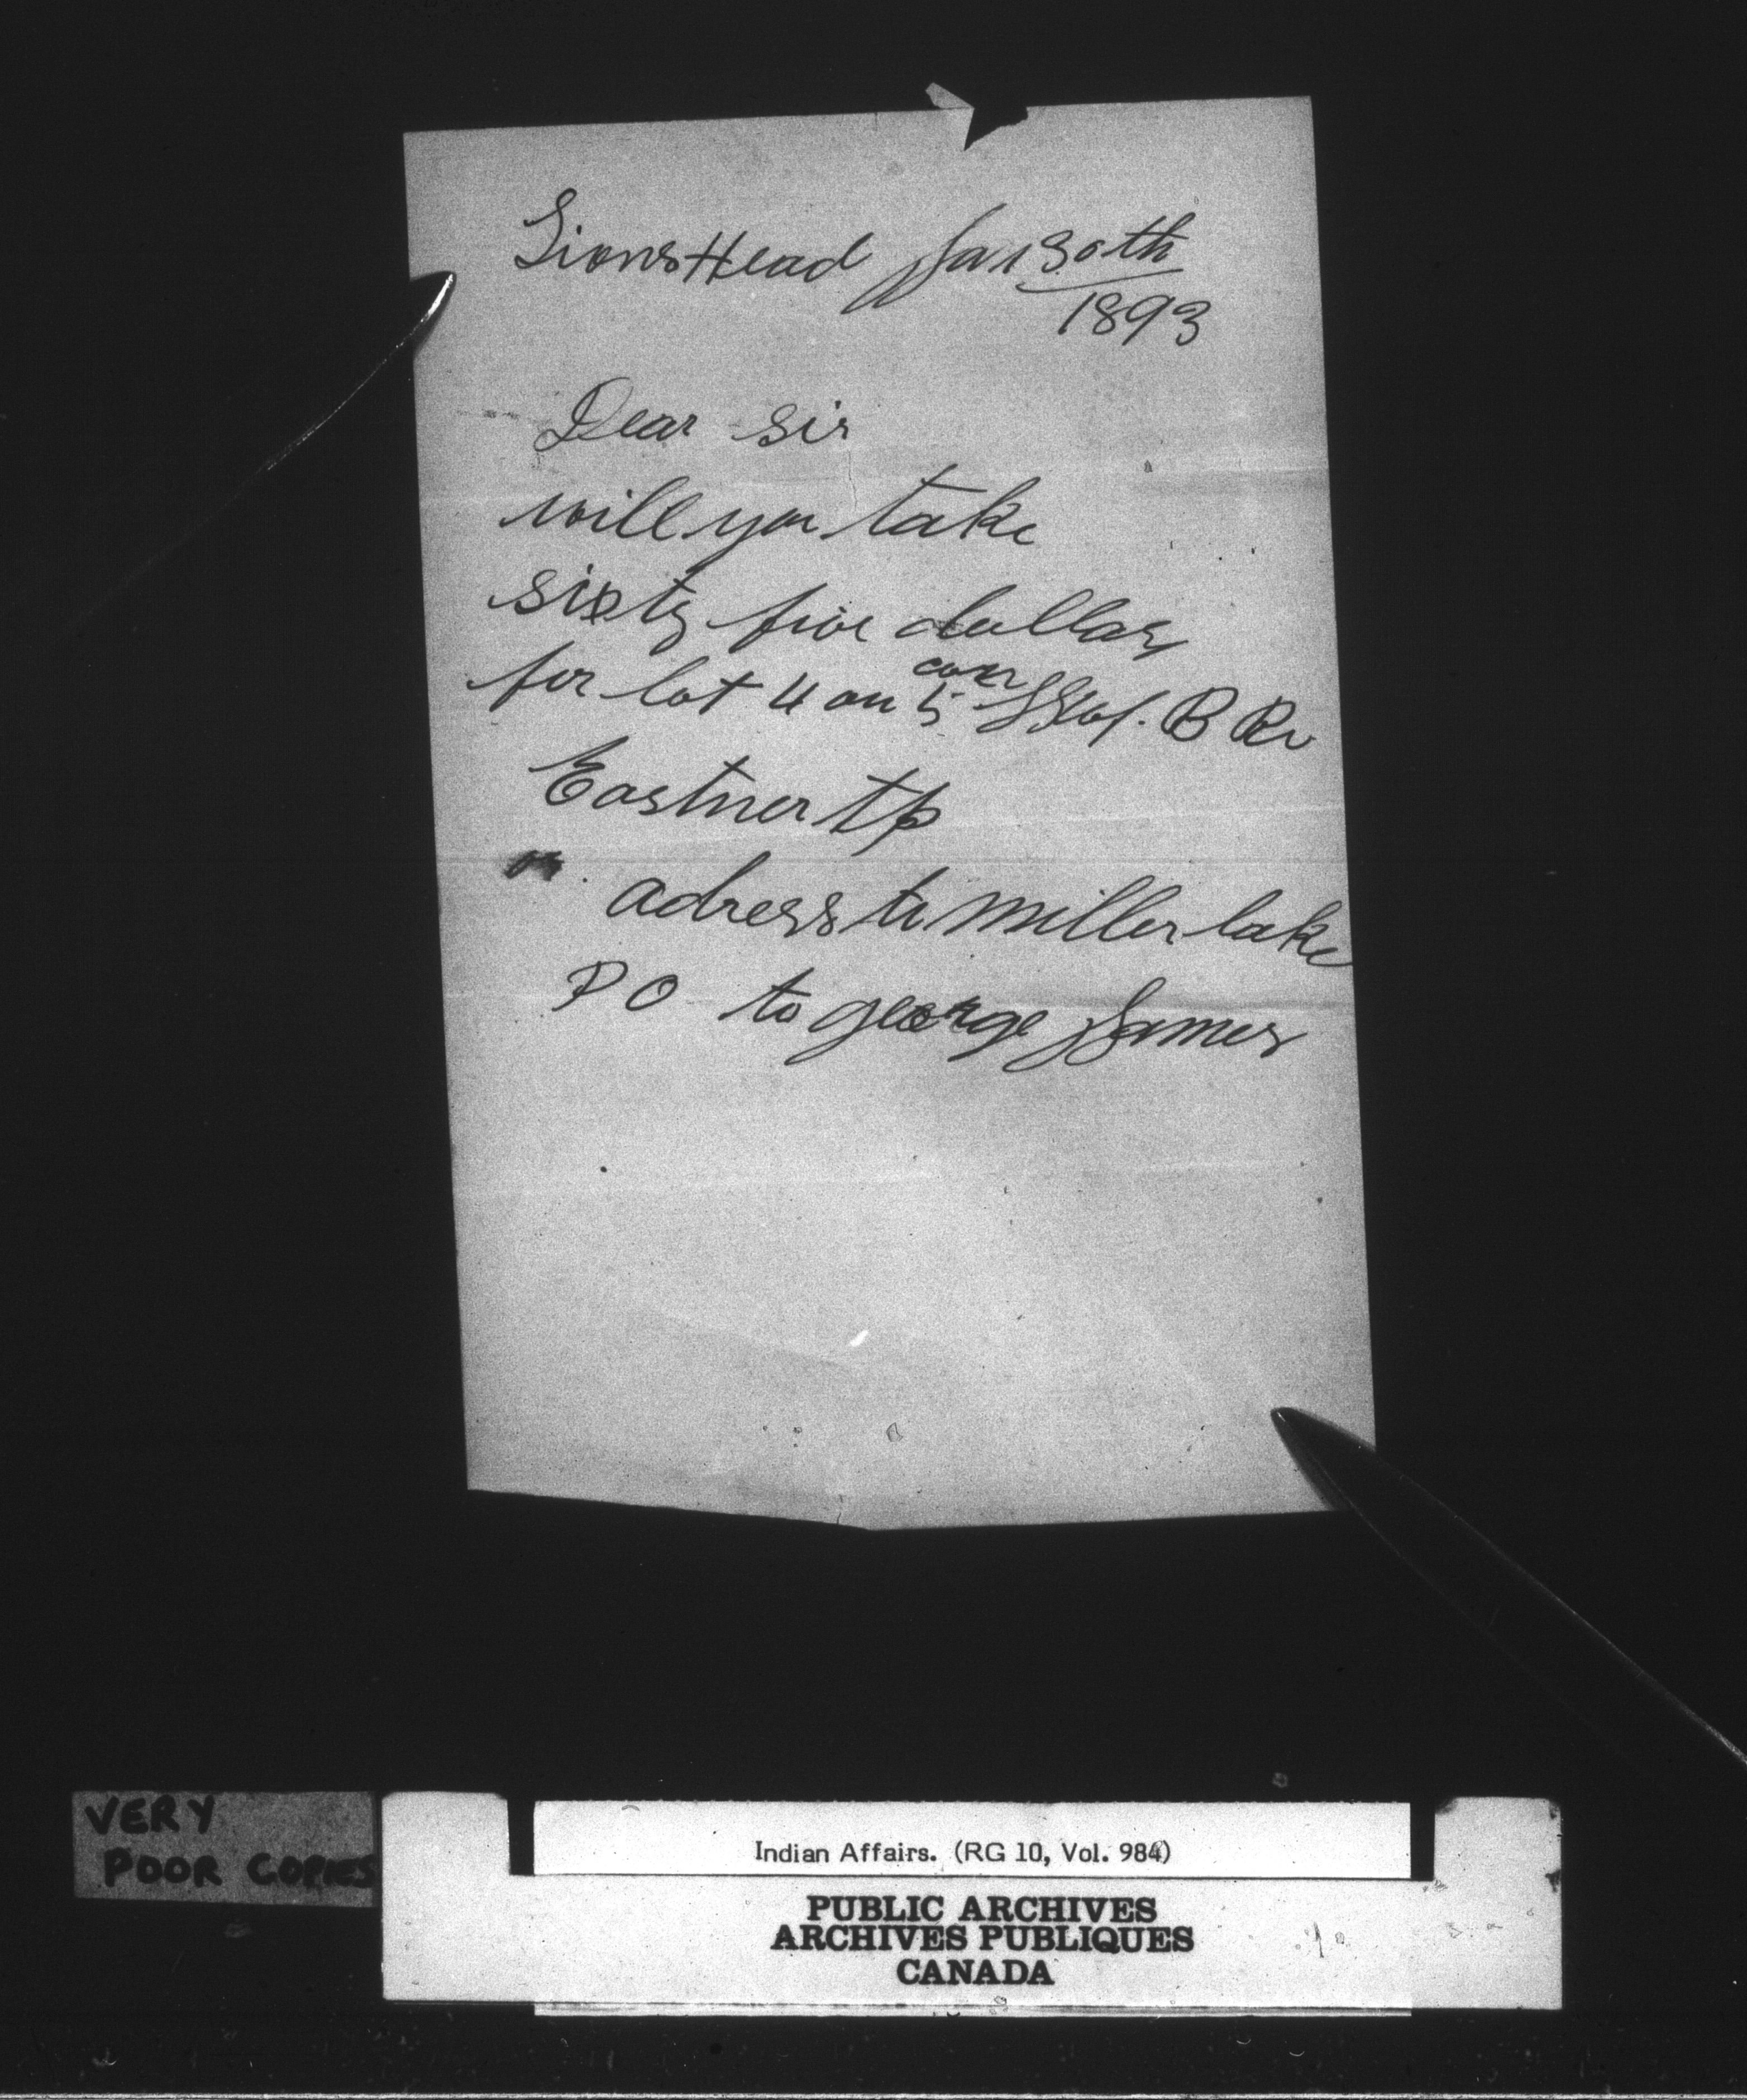 Lions Head Jan 30th
1893
Dear sir
will you take
sixty five dollars
for lot 4 on 5 con B R
Eastner tp
adress to miller lake
P O to george James
VERY
POOR COPIES
Indian Affairs. (RG 10, Vol. 984)
PUBLIC ARCHIVES
ARCHIVES PUBLIQUES
CANADA